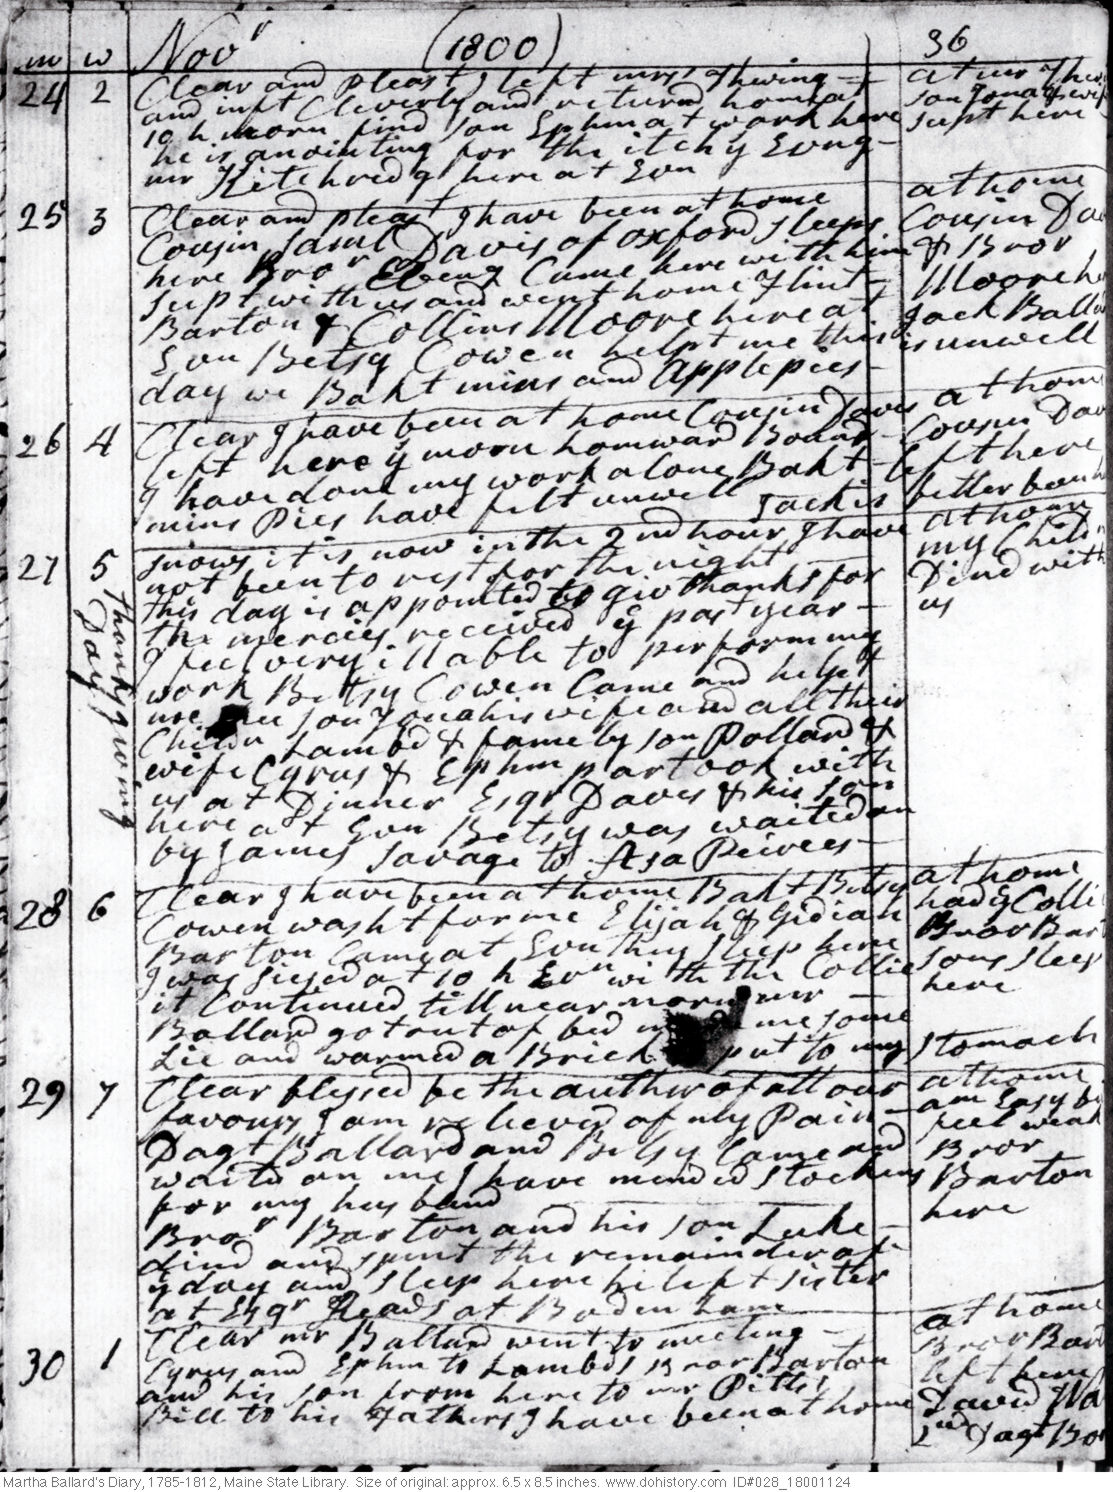 m w Novr (1800) 36
24 2 Clear and pleast I left mrs Thwing
and inft Cleverly and returnd home at
10 h morn find son Ephm at work here
he is anointing for the itch y Evng
mr Kitchredg here at Evn
at mr
son Jona & wife
supt here
25 3 Clear and pleast I have been at home
Cousin Saml Davis of oxford sleeps
here Bror Ebeng Came here with him
supt with us and went home Flint
Barton & Collins Moore here at
Evn Betsy Cowen helpt me this
day we Bakt mins and Apple pies
at home
Cousin
& Bror
Moore
Jack
is unwell
26 4 Clear I have been at home Cousin Daves
left here y morn homward Bound
I have done my work alone Bakt
mins Pies have felt unwell Jack is
at home
Cousin
left here
better
27 5 Thanksgiving Day
snows it is now in the 2nd hour I have
not been to rest for the night
this day is appointed to give thanks for
the mercies received y past year
I feel very ill able to perform my
work Betsy Cowen Came and helpt
me son Jona his wife and all their
Childn Lambd & famely son Pollard &
wife Cyrus & Ephm partook with
us at Dinner Esqr Daves & his son
here at Evn Betsy was waited on
by James Savage to Asa Peirces
at home
my Childn
Dind with
us
28 6 Clear I have been at home Bakt Betsy
Cowen washt for me Elijah & Gidian
Barton Came at Evn they sleep here
I was siezed at 10 h Evn with the Collic
it Continued till near morn mr
Ballard got out of bed me some
Lie and warmed a Brick put to my stomach
at home
had y
Bror
sons sleep
here
29 7 Clear blessed be the author of all our
favours I am relievd of my Pain
Dagt Ballard and Betsy Came and
waited on me I have mended stockens
for my husband
Bror Barton and his son Luke
dind and spent the remainder of
y day and sleep here he left sister
at Esqr Reads at Bodenham
at home
am Easy
feel weak
Bror
Barton
here
30 1 Clear mr Ballard went to meeting
Cyrus and Ephm to Lambds Bror Barton
and his son from here to mr Pitts
Bill to his Fathers I have been at home
at home
Bror
left here
David
2nd Dagt
Martha Ballard's Diary, 1785-1812, Maine State Library. Size of original: approx. 6.5 x 8.5 inches. www.dohistory.com ID#028_18001124